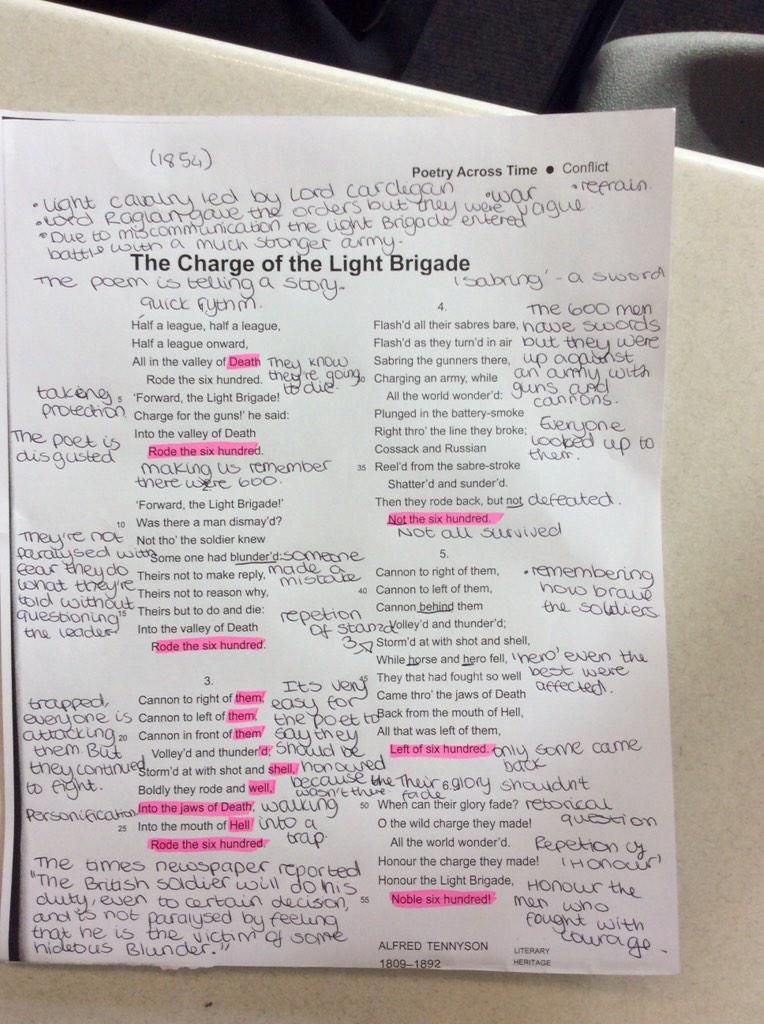 (1854)
Poetry Across Time ● Conflict
• Light cavalry led by Lord Cardegan
• war
• refrain
• Lord Raglan gave the orders but they were vague
• Due to miscommunication the light Brigade entered
battle with a much stronger army.
The Charge of the Light Brigade
The poem is telling a story.
'sabring' - a sword
quick rythm.
Half a league, half a league,
Half a league onward,
All in the valley of Death
They know
they're going
to die.
Rode the six hundred.
taking
protection
5
'Forward, the Light Brigade!
Charge for the guns!' he said:
Into the valley of Death
The poet is
disgusted
Rode the six hundred.
making us remember
there were 600.
'Forward, the Light Brigade!'
10
Was there a man dismay'd?
Not tho' the soldier knew
Some one had blunder'd:
someone
made a
mistake
They're not
paralysed with
fear they do
what they're
told without
questioning
the leader
Theirs not to make reply,
Theirs not to reason why,
15
Theirs but to do and die:
Into the valley of Death
Rode the six hundred.
repetion
of stanza
3
3.
Cannon to right of them,
Cannon to left of them,
20
Cannon in front of them
Volley'd and thunder'd;
Storm'd at with shot and shell,
Boldly they rode and well,
Into the jaws of Death,
25
Into the mouth of Hell
Rode the six hundred.
It's very
easy for
the poet to
say they
should be
honoured
because he
wasn't there.
trapped,
everyone is
attacking
them. But
they continued
to fight.
Personification
walking
into a
trap.
The times newspaper reported
"The British soldier will do his
duty, even to certain decison,
and is not paralysed by feeling
that he is the victim of some
hideous Blunder."
4.
Flash'd all their sabres bare,
Flash'd as they turn'd in air
Sabring the gunners there,
Charging an army, while
All the world wonder'd:
Plunged in the battery-smoke
Right thro' the line they broke;
Cossack and Russian
35
Reel'd from the sabre-stroke
Shatter'd and sunder'd.
Then they rode back, but not
Not the six hundred.
The 600 men
have swords
but they were
up against
an army with
guns and
cannons.
Everyone
looked up to
them.
defeated.
Not all survived
5.
Cannon to right of them,
40
Cannon to left of them,
Cannon behind them
Volley'd and thunder'd;
Storm'd at with shot and shell,
While horse and hero fell,
45
They that had fought so well
Came thro' the jaws of Death
Back from the mouth of Hell,
All that was left of them,
Left of six hundred.
• remembering
how brave
the soldiers
'hero' even the
best were
affected.
only some came
back
Their glory shouldn't
fade
6.
50
When can their glory fade?
O the wild charge they made!
All the world wonder'd.
Honour the charge they made!
Honour the Light Brigade,
55
Noble six hundred!
retorical
question
Repetion of
'Honour'
Honour the
men who
fought with
courage.
ALFRED TENNYSON
1809–1892
LITERARY
HERITAGE